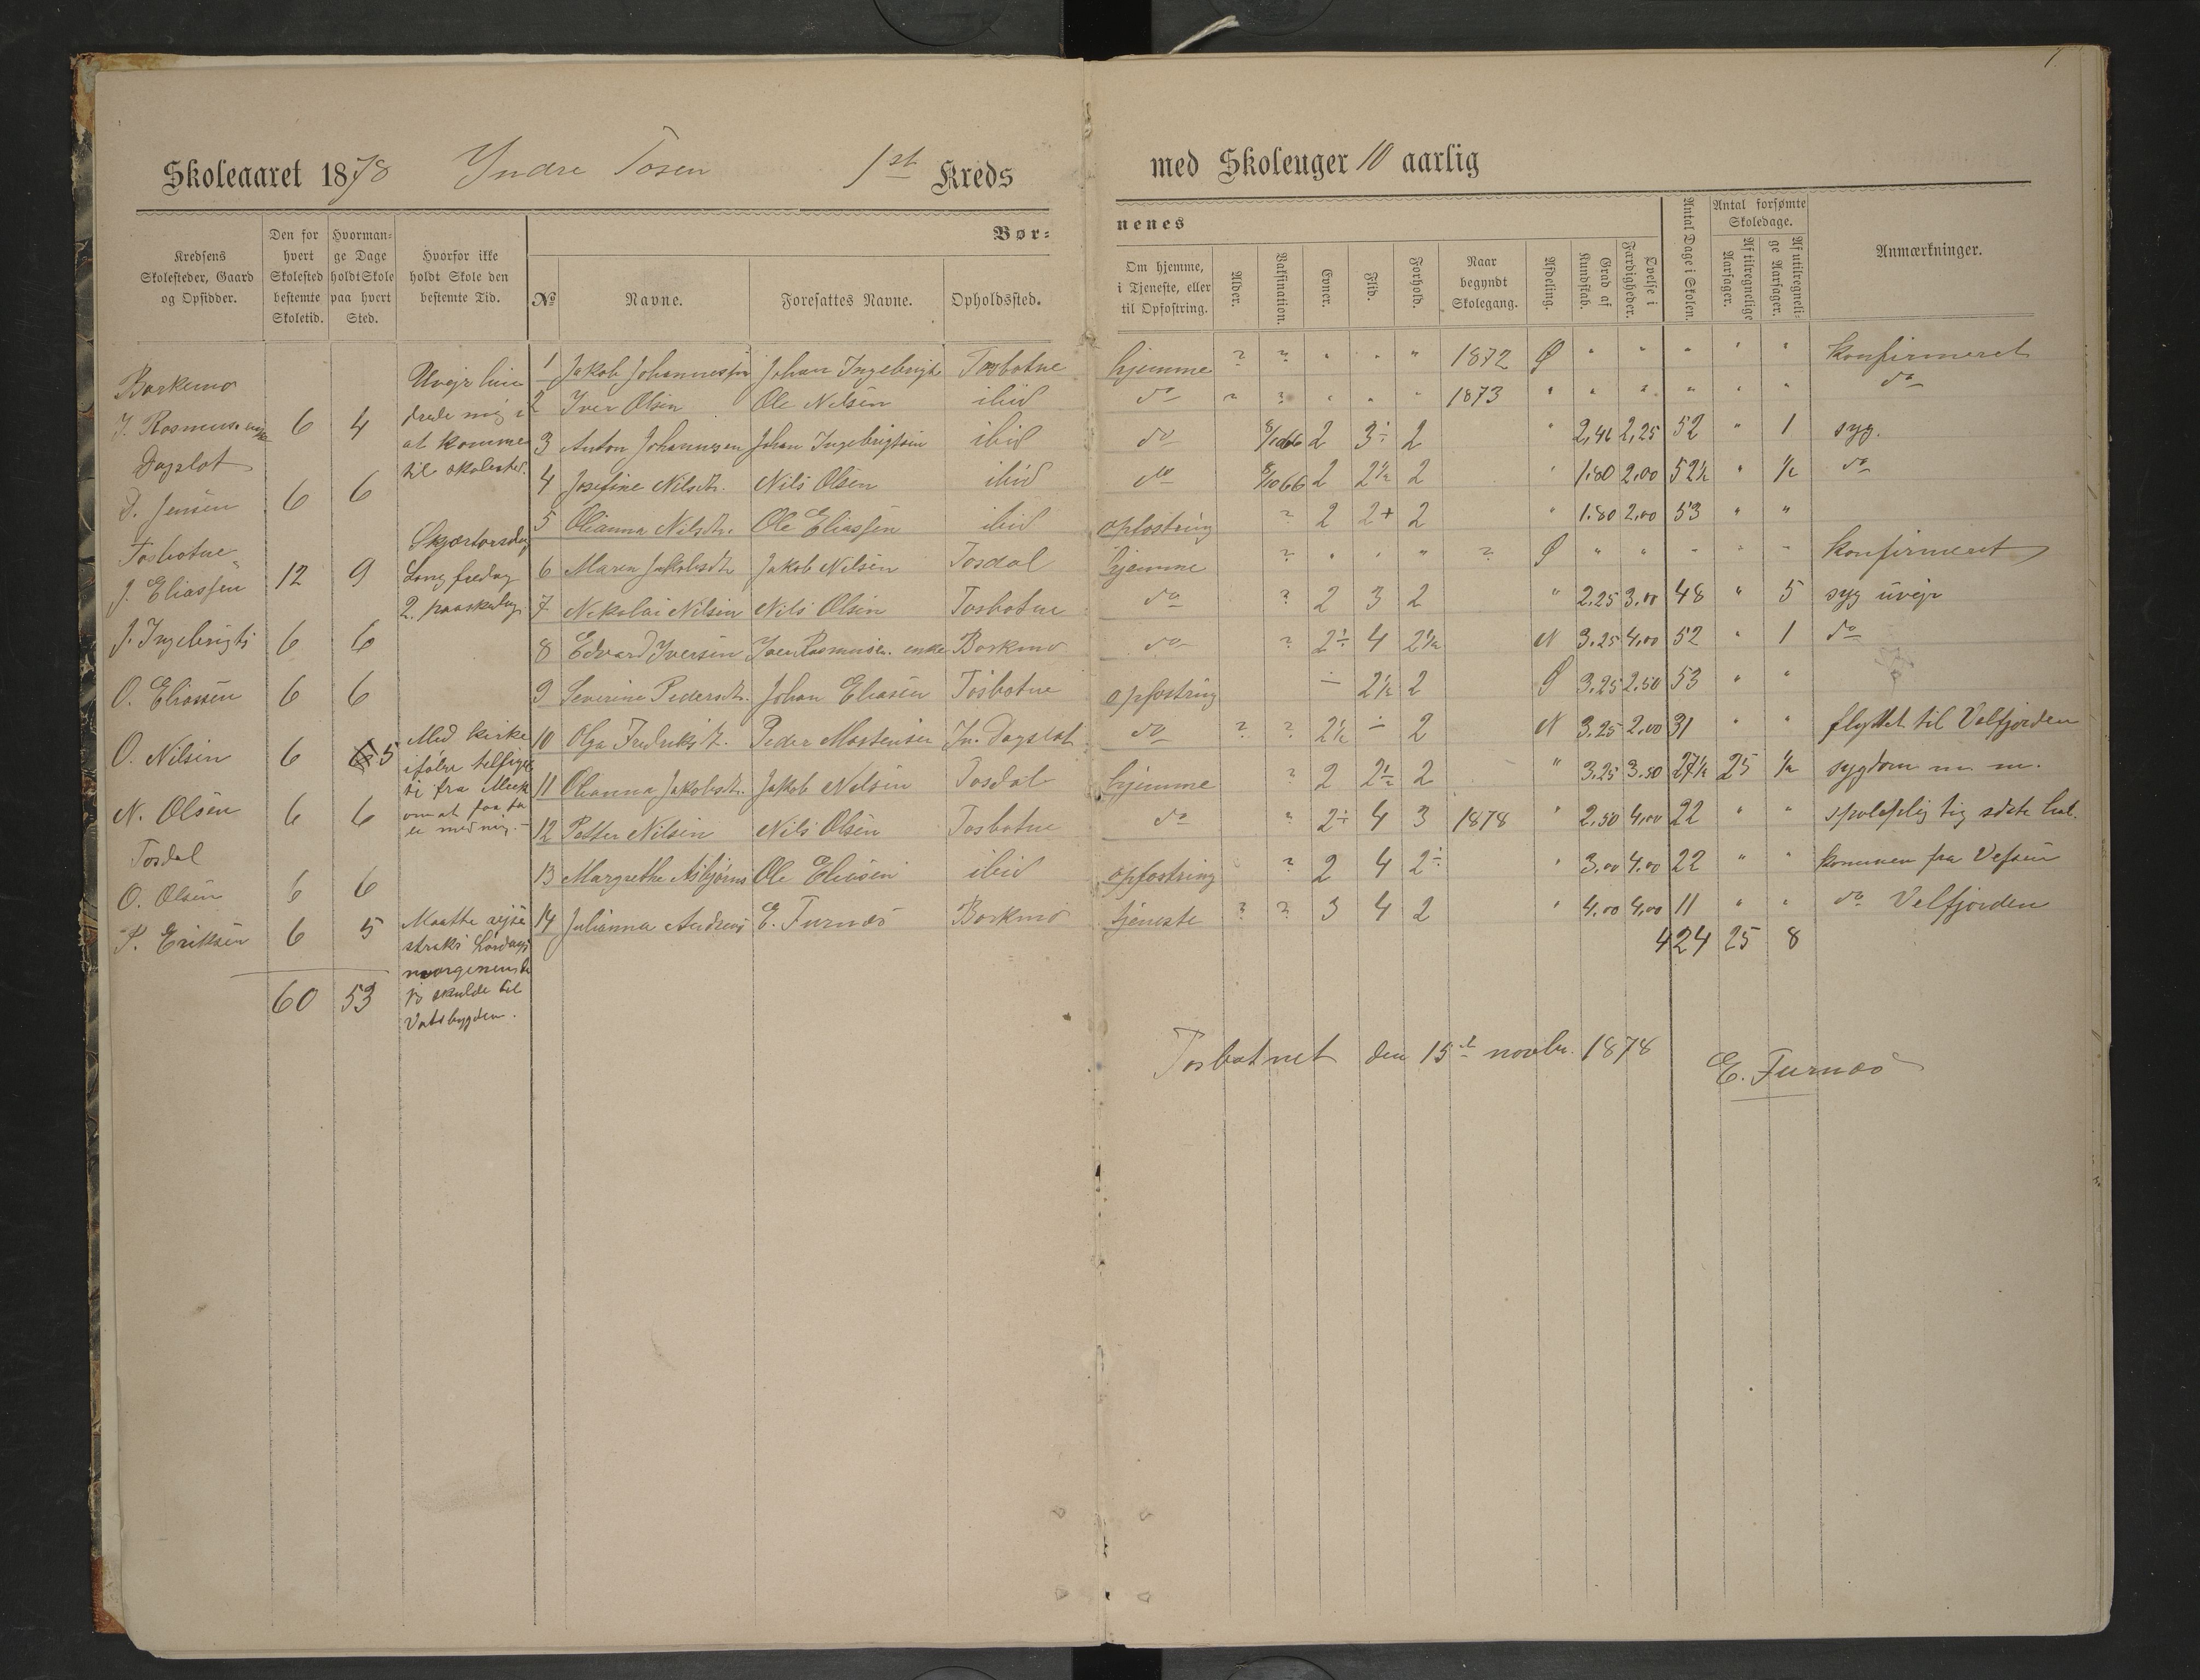 1
Skoleaaret 1878 Yndre Tosen 1st Kreds
med Skoleuger 10 aarlig
Kredsens Skolesteder, Gaard og Opsidder.
Den for hvert Skolested bestemte Skoletid.
Hvormange Dage holdt Skole paa hvert Sted.
Hvorfor ikke holdt Skole den bestemte Tid.
Bør=
nenes
No
Navne.
Foresattes Navne.
Opholdssted.
Om hjemme, i Tjeneste, eller til Opfostring.
Alder.
Vaksination.
Evner.
Flid.
Forhold.
Naar begyndt Skolegang.
Afdeling.
Grad af Kundskab.
Øvelse i Færdigheder.
Antal Dage i Skolen.
Antal forsømte Skoledage.
Af tilregnelige Aarsager.
Af utilregnelige Aarsager.
Anmærkninger.
Borkemo
J. Rasmuss. enke 6 4
Dagslot
D. Jensen 6 6
Tosbotne
J. Eliassen 12 9
J. Ingebrigts 6 6
O. Eliassen 6 6
O. Nilsen 6 5
N. Olsen 6 6
Tosdal
O. Olsen 6 6
P. Eriksen 6 5
60 53
Uvejr hin
drede mig i
at komme
til skolested.
Skjærtorsdag
Langfredag
2. paaskedag
Med kirke
ifølge
fra
om at faa
er med mig.
Maatte rejse
straks Lørdags
morgenen da
jeg skulde til
Vatsbygden.
1 Jakob Johannessen Johan Ingebrigts Tosbotne hjemme ? ? " " " 1872 Ø " " " " " konfirmeret
2 Iver Olsen Ole Nilsen ibid do ? ? " " " 1873 " " " " " " do
3 Anton Johannesen Johan Ingebrigtsen ibid do 8/10 66 2 3÷ 2 " 2,46 2,25 52 " 1 syg.
4 Josefine Nilsdtr. Nils Olsen ibid do 8/10 66 2 2½ 2 " 1.80 2,00 52½ " ½ do
5 Olianna Nilsdtr. Ole Eliassen ibid opfostring ? 2 2+ 2 " 1.80 2,00 53 " "
6 Maren Jakobsdtr. Jakob Nilsen Tosdal hjemme ? " " " ? Ø " " " " " konfirmeret
7 Nikolai Nilsen Nils Olsen Tosbotne do ? 2 3 2 " 2,25 3,00 48 " 5 syg uvejr
8 Edvard Iversen Iver Rasmuss. enke Borkmo do ? 2÷ 4 2½ N 3,25 4,00 52 " 1 do
9 Severine Pedersdtr. Johan Eliasen Tosbotne opfostring ÷ 2½ 2 Ø 3,25 2,50 53 " "
10 Olga Fredriksdt. Peder Mortensen In. Dagslot do ? ? 2½ ÷ 2 N 3,25 2,00 31 " " flyttet til Velfjorden
11 Olianna Jakobsdt. Jakob Nilsen Tosdal hjemme ? 2 2½ 2 " 3,25 3,50 27½ 25 ½ sygdom m. m.
12 Petter Nilsen Nils Olsen Tosbotne do " 2÷ 4 3 1878 " 2,50 4,00 22 " " skolepligtig
13 Margrethe Asbjørns Ole Eliasen ibid opfostring ? 2 4 2÷ " 3,00 4,00 22 " " kommen fra Vefsen
14 Julianna Andreas E. Furnæs Borkmo tjeneste ? ? 3 4 2 " 4,00 4,00 11 " " do Velfjorden
424 25 8
Tosbotnet den 15de novbr. 1878
E. Furnæs